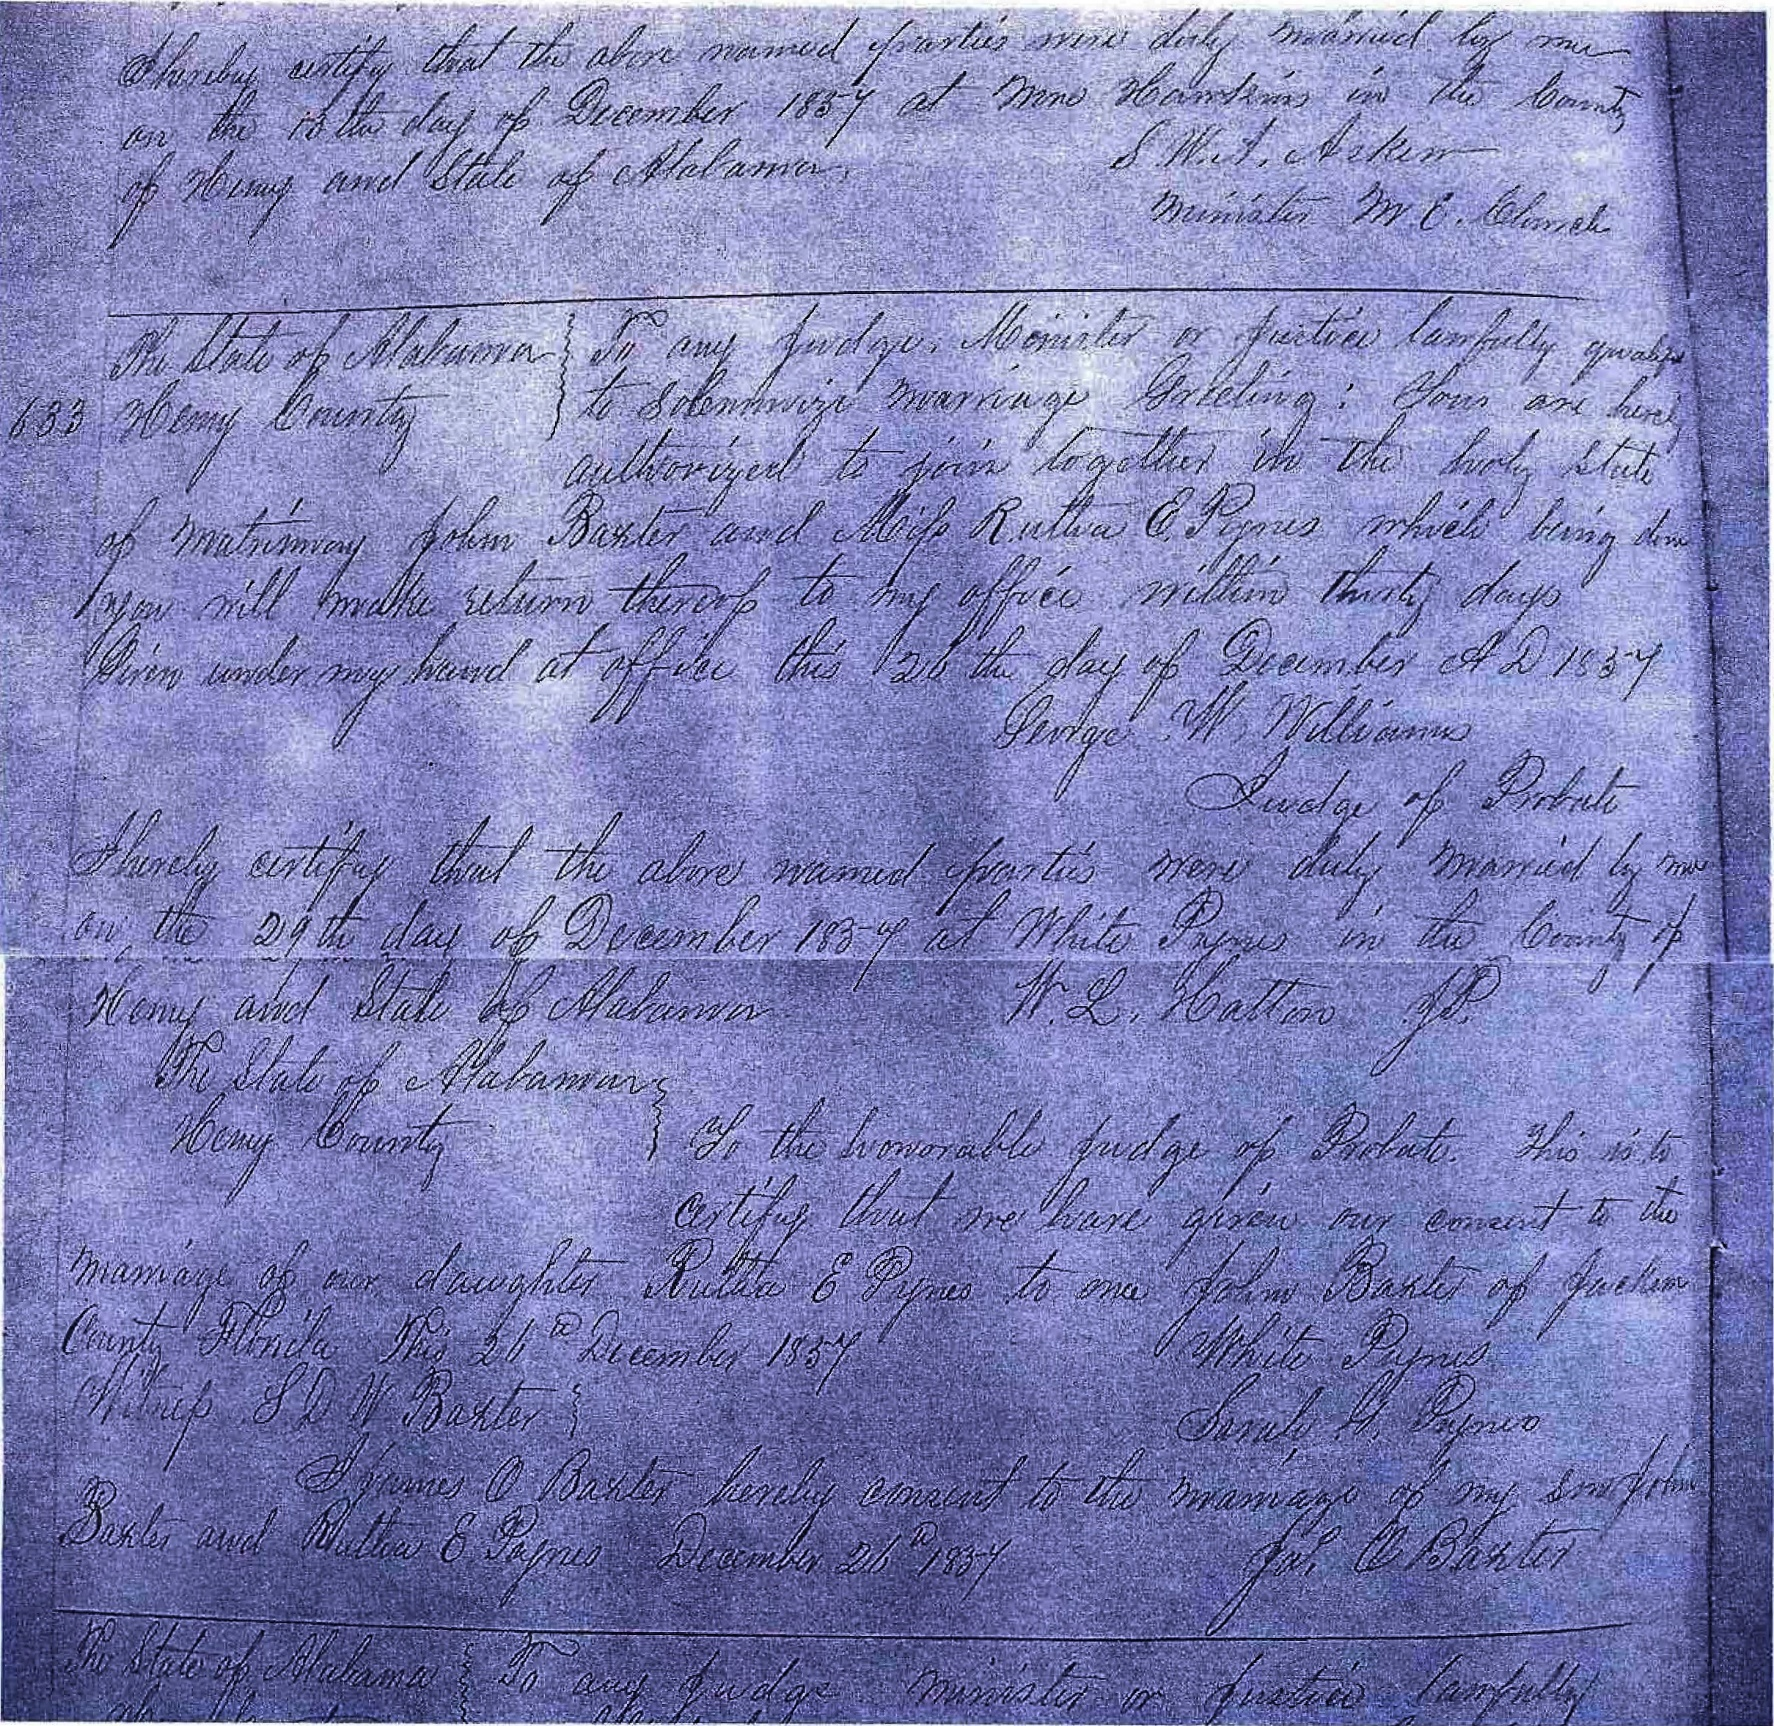 I hereby certify that the above named parties were duly married by me
on the 13th day of December 1857 at Mrs Hawkins in the County
of Henry and State of Alabama.
S. W. A. Askew
Minister M E. Church
The State of Alabama } To any Judge, Minister or Justice lawfully
633 Henry County } to Solemnize Marriage Greeting: You are
authorized to join together in the holy state
of matrimony John Baxter and Miss Rutha E. Pynes which being done
you will make return thereof to my office within thirty days
Given under my hand at office this 26th day of December A D 1857
George W. Williams
Judge of Probate
I hereby certify that the above named parties were duly married by me
on the 29th day of December 1857 at White Pynes in the County of
Henry and State of Alabama W. L. Hatton J.P.
The State of Alabama }
Henry County } To the honorable Judge of Probate. This is to
certify that we have given our consent to the
marriage of our daughter Rutha E Pynes to one John Baxter of
County Florida This 26th December 1857 White Pynes
Witness S D W Baxter } Sarah Pynes
I James O Baxter hereby consent to the marriage of my son John
Baxter and Rutha E Pynes December 26th 1857 Jas. O Baxter
The State of Alabama } To any Judge Minister or Justice lawfully